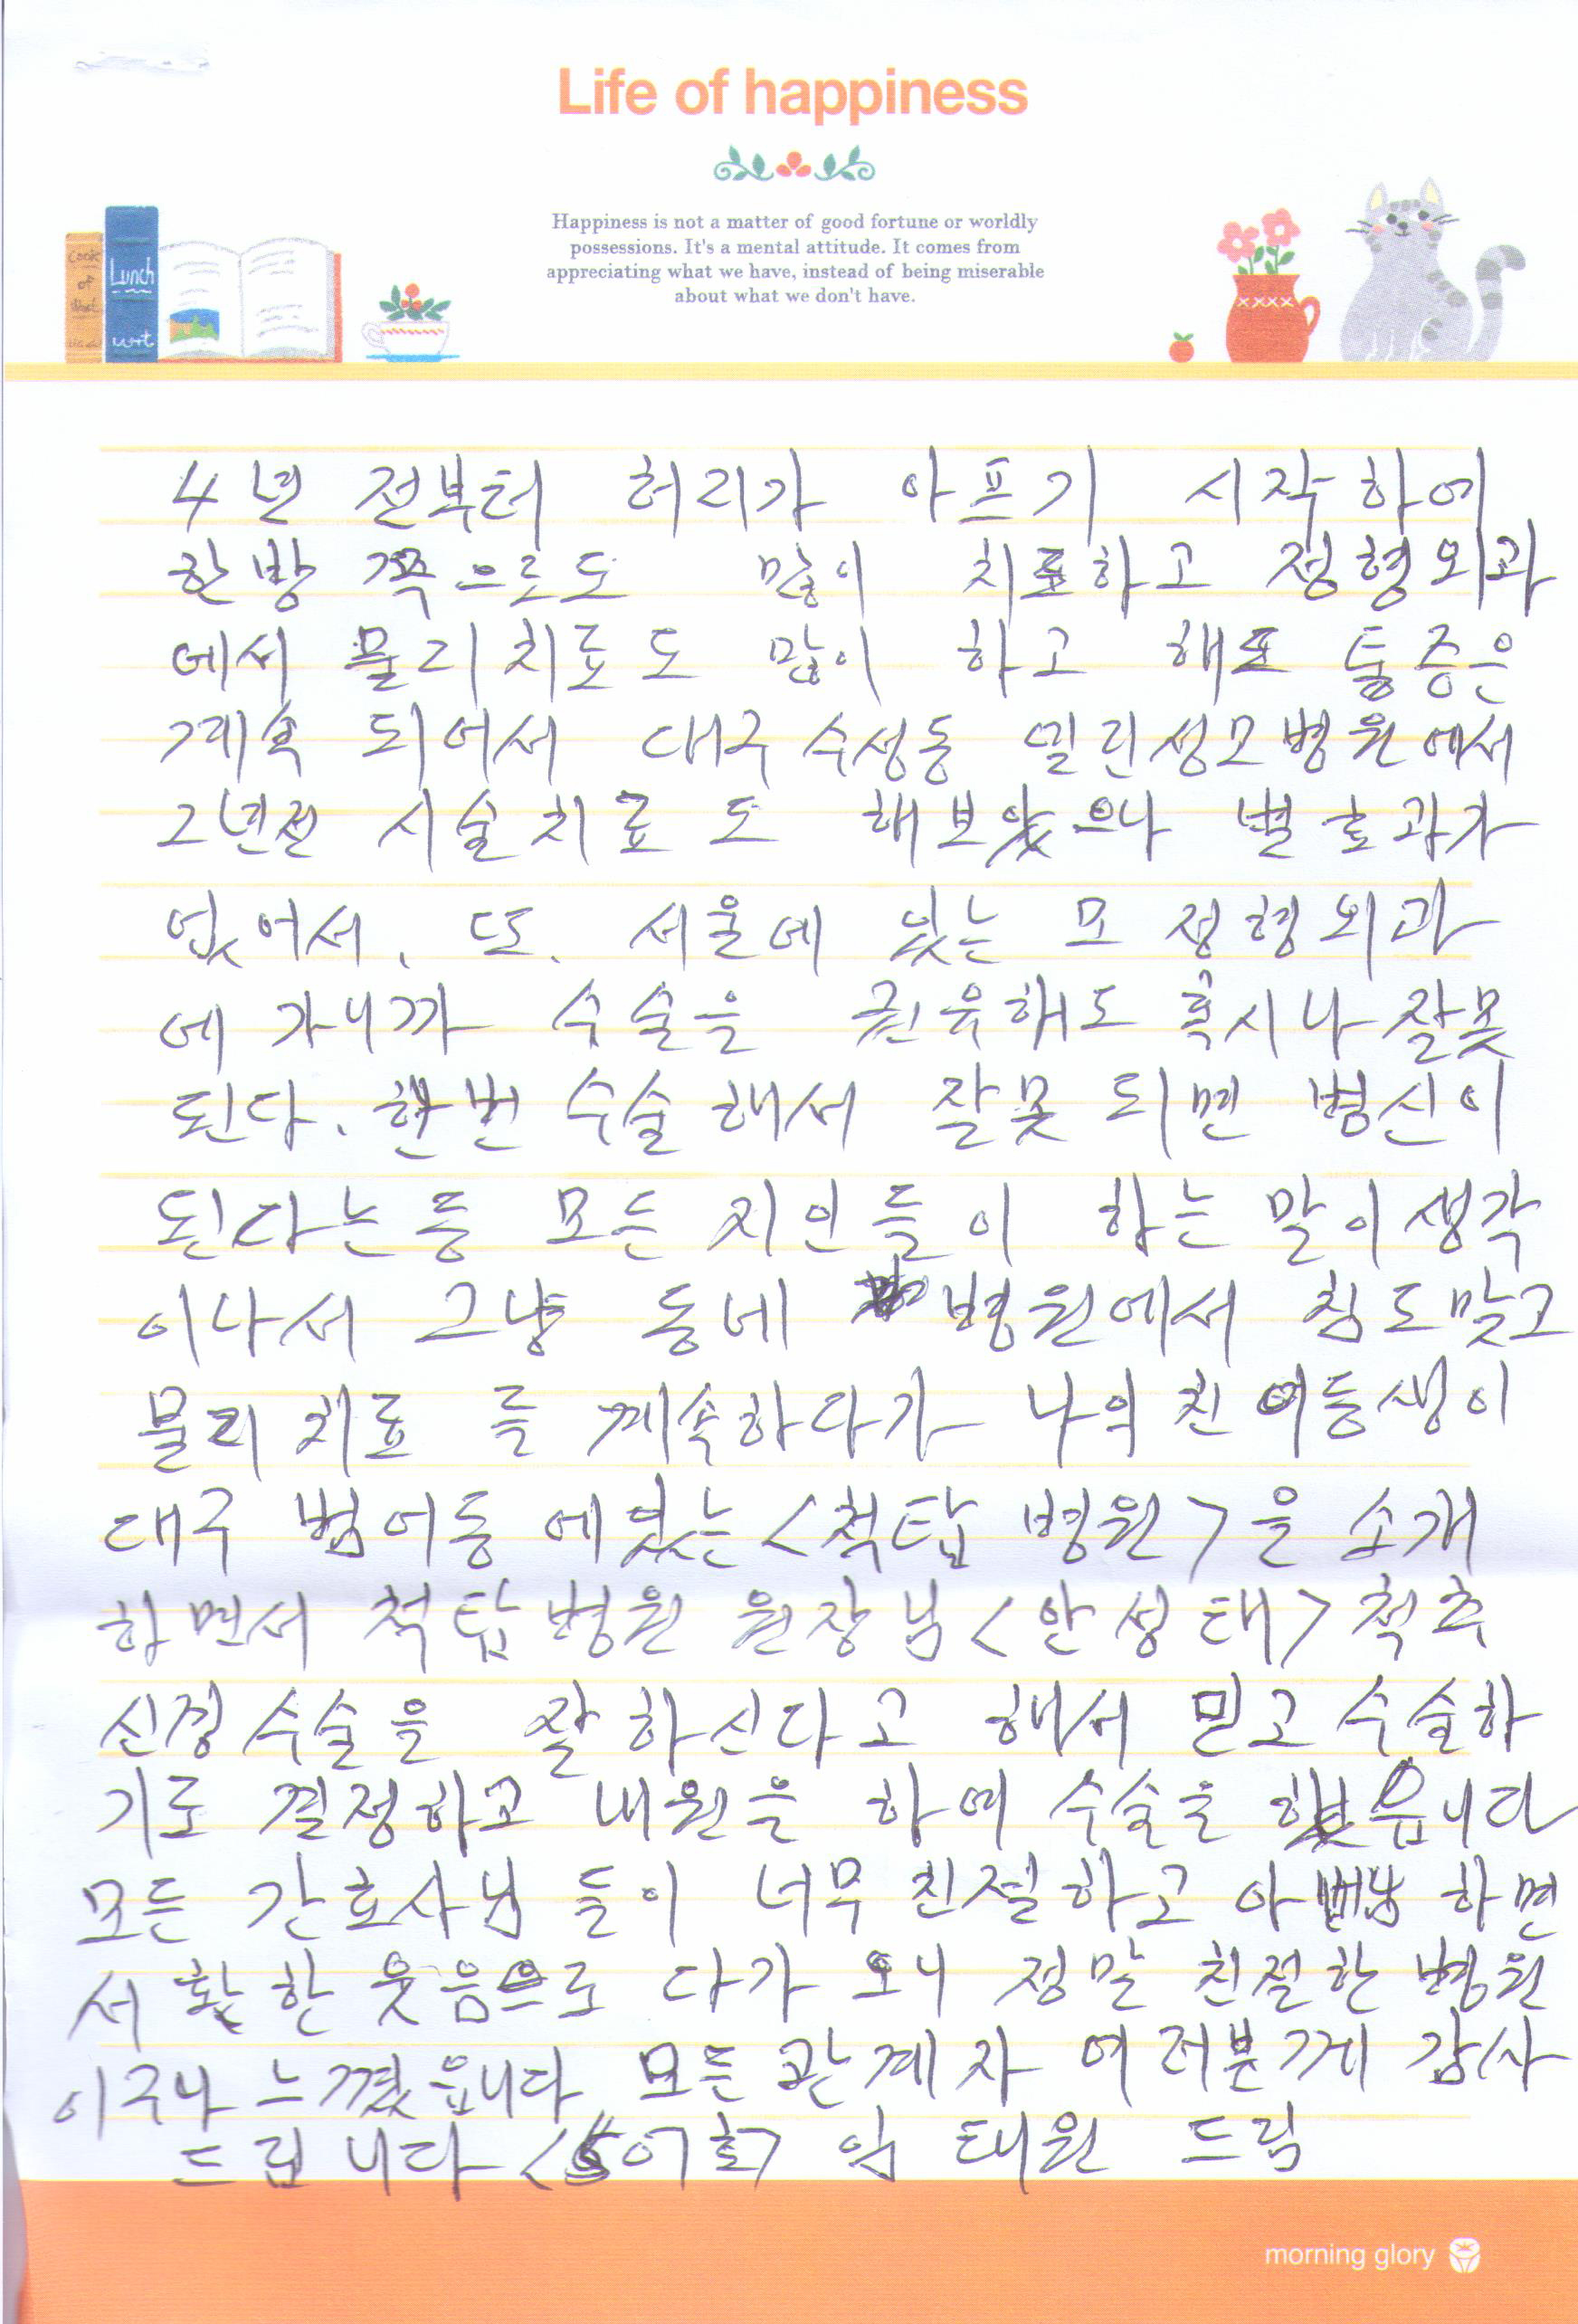 Life of happiness
Happiness is not a matter of good fortune or worldly
possessions. It's a mental attitude. It comes from
appreciating what we have, instead of being miserable
about what we don't have.
Cook
of
Lunch
4년 전부터 허리가 아프기 시작하여
한방 쪽으로도 많이 치료하고 정형외과
에서 물리치료도 많이 하고 해도 통증은
계속 되어서 대구 수성동 밀린성모병원에서
2년전 시술치료도 해보았으나 별효과가
없어서. 또. 서울에 있는 모 정형외과
에 가니까 수술을 권유해도 혹시나 잘못
된다. 한번 수술해서 잘못되면 병신이
된다는등 모든 지인들이 하는 말이 생각
이나서 그냥 동네 병원에서 침도맞고
물리치료를 계속하다가 나의 친여동생이
대구 범어동에있는 <척탑 병원>을 소개
하면서 척탑병원 원장님 <안성태> 척추
신경수술을 잘하신다고 해서 믿고 수술하
기로 결정하고 내원을 하여 수술을 했읍니다
모든 간호사님들이 너무 친절하고 하면
서 환한 웃음으로 다가 오니 정말 친절한 병원
이구나 느꼈읍니다 모든 관계자 여러분께 감사
드립니다 임태원 드림
morning glory